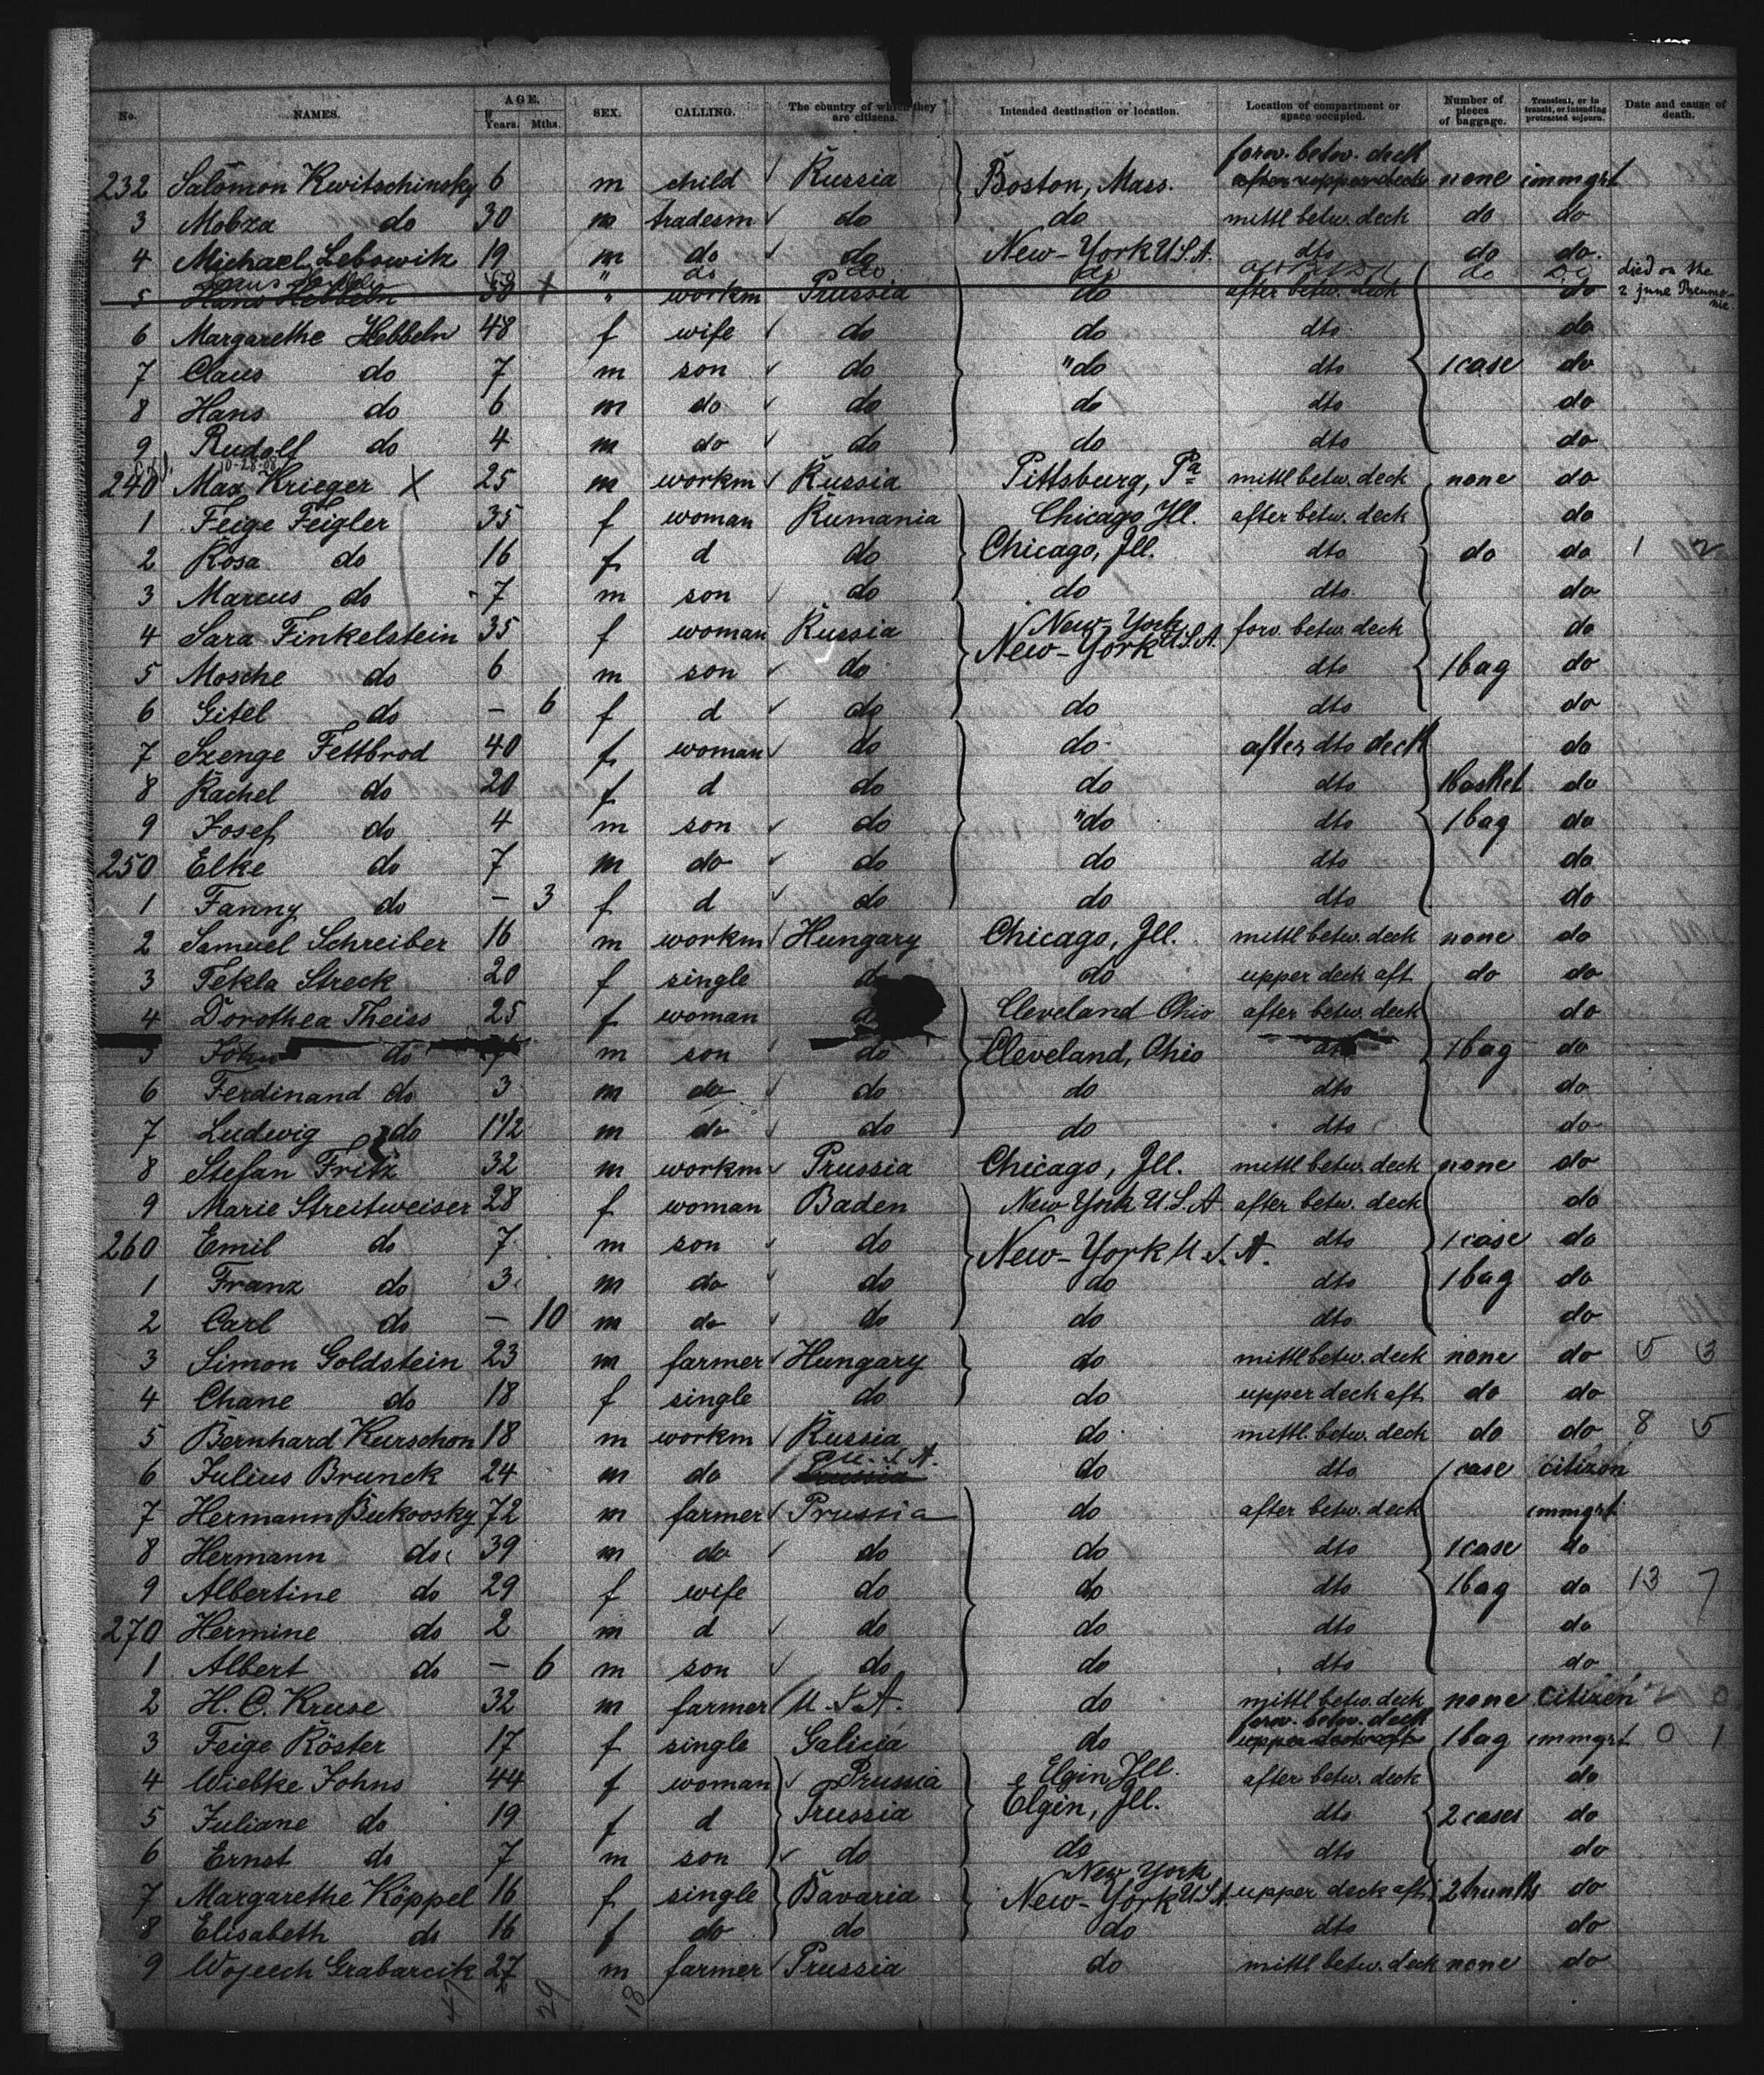 No. NAMES. AGE. Years. Mths. SEX. CALLING. The country of which they are citizens. Intended destination or location. Location of compartment or space occupied. Number of pieces of baggage. Transient, or in transit, or intending protracted sojourn. Date and cause of death.
forw. betw. deck
232 Salomon Kwitschinsky 6 m child Russia Boston, Mass. after upper deck none immgrt
3 Mobza do 30 m tradesm do do mittl betw. deck do do
4 Michael Lebowitz 19 m do do New-York U.S.A. dto do do.
5 Hans Hebbeln 58 " workm Prussia do after betw. deck do died on the 2 june Pneumonie
6 Margarethe Hebbeln 48 f wife do do dto do
7 Claus do 7 m son do "do dto 1 case do
8 Hans do 6 m do do do dto do
9 Rudolf do 4 m do do do dto do
10-28-08
240 Max Krieger X 25 m workm Russia Pittsburg, Pa mittl betw. deck none do
1 Feige Feigler 35 f woman Rumania Chicago Ill. after betw. deck do
2 Rosa do 16 f d do Chicago, Ill. dto do do 1 2
3 Marcus do 7 m son do do dto do
4 Sara Finkelstein 35 f woman Russia New-York forw. betw. deck do
5 Mosche do 6 m son do New-York U.S.A. dto 1 bag do
6 Gitel do - 6 f d do do dto do
7 Szenge Fettbrod 40 f woman do do after dto deck do
8 Rachel do 20 f d do do dto 1 basket do
9 Josef do 4 m son do "do dto 1 bag do
250 Elke do 7 m do do do dto do
1 Fanny do - 3 f d do do dto do
2 Samuel Schreiber 16 m workm Hungary Chicago, Ill. mittl betw. deck none do
3 Tekla Streck 20 f single do do upper deck aft do do
4 Dorothea Theiss 25 f woman Cleveland Ohio after betw. deck do
5 John do m son do Cleveland, Ohio dto 1 bag do
6 Ferdinand do 3 m do do do dto do
7 Ludwig do 1 1/2 m do do do dto do
8 Stefan Fritz 32 m workm Prussia Chicago, Ill. mittl betw. deck none do
9 Marie Streitweiser 28 f woman Baden New York U.S.A after betw. deck do
260 Emil do 7 m son do New-York U.S.A. dto 1 case do
1 Franz do 3 m do do do dto 1 bag do
2 Carl do - 10 m do do do dto do
3 Simon Goldstein 23 m farmer Hungary do mittl betw. deck none do 5 3
4 Chane do 18 f single do do upper deck aft do do
5 Bernhard Kurschon 18 m workm Russia do mittl. betw. deck do do 8 5
6 Julius Brunck 24 m do U.S.A. do dto 1 case citizen
7 Hermann Bukoosky 72 m farmer Prussia do after betw. deck immgrt
8 Hermann do 39 m do do do dto 1 case do
9 Albertine do 29 f wife do do dto 1 bag do 13 7
270 Hermine do 2 m d do do dto do
1 Albert do - 6 m son do do dto do
2 H. C. Kruse 32 m farmer U.S.A. do mittl betw. deck none citizen 2 0
forw. betw. deck
3 Feige Röster 17 f single Galicia do upper deck aft 1 bag immgrt 0 1
4 Wiebke Johns 44 f woman Prussia Elgin Ill. after betw. deck do
5 Juliane do 19 f d Prussia Elgin, Ill. dto 2 cases do
6 Ernst do 7 m son do do dto do
New York
7 Margarethe Köppel 16 f single Bavaria New-York U.S.A. upper deck aft 2 trunks do
8 Elisabeth do 16 f do do do dto do
9 Wojeech Grabarcik 27 m farmer Prussia do mittl betw. deck none do
47 29 18